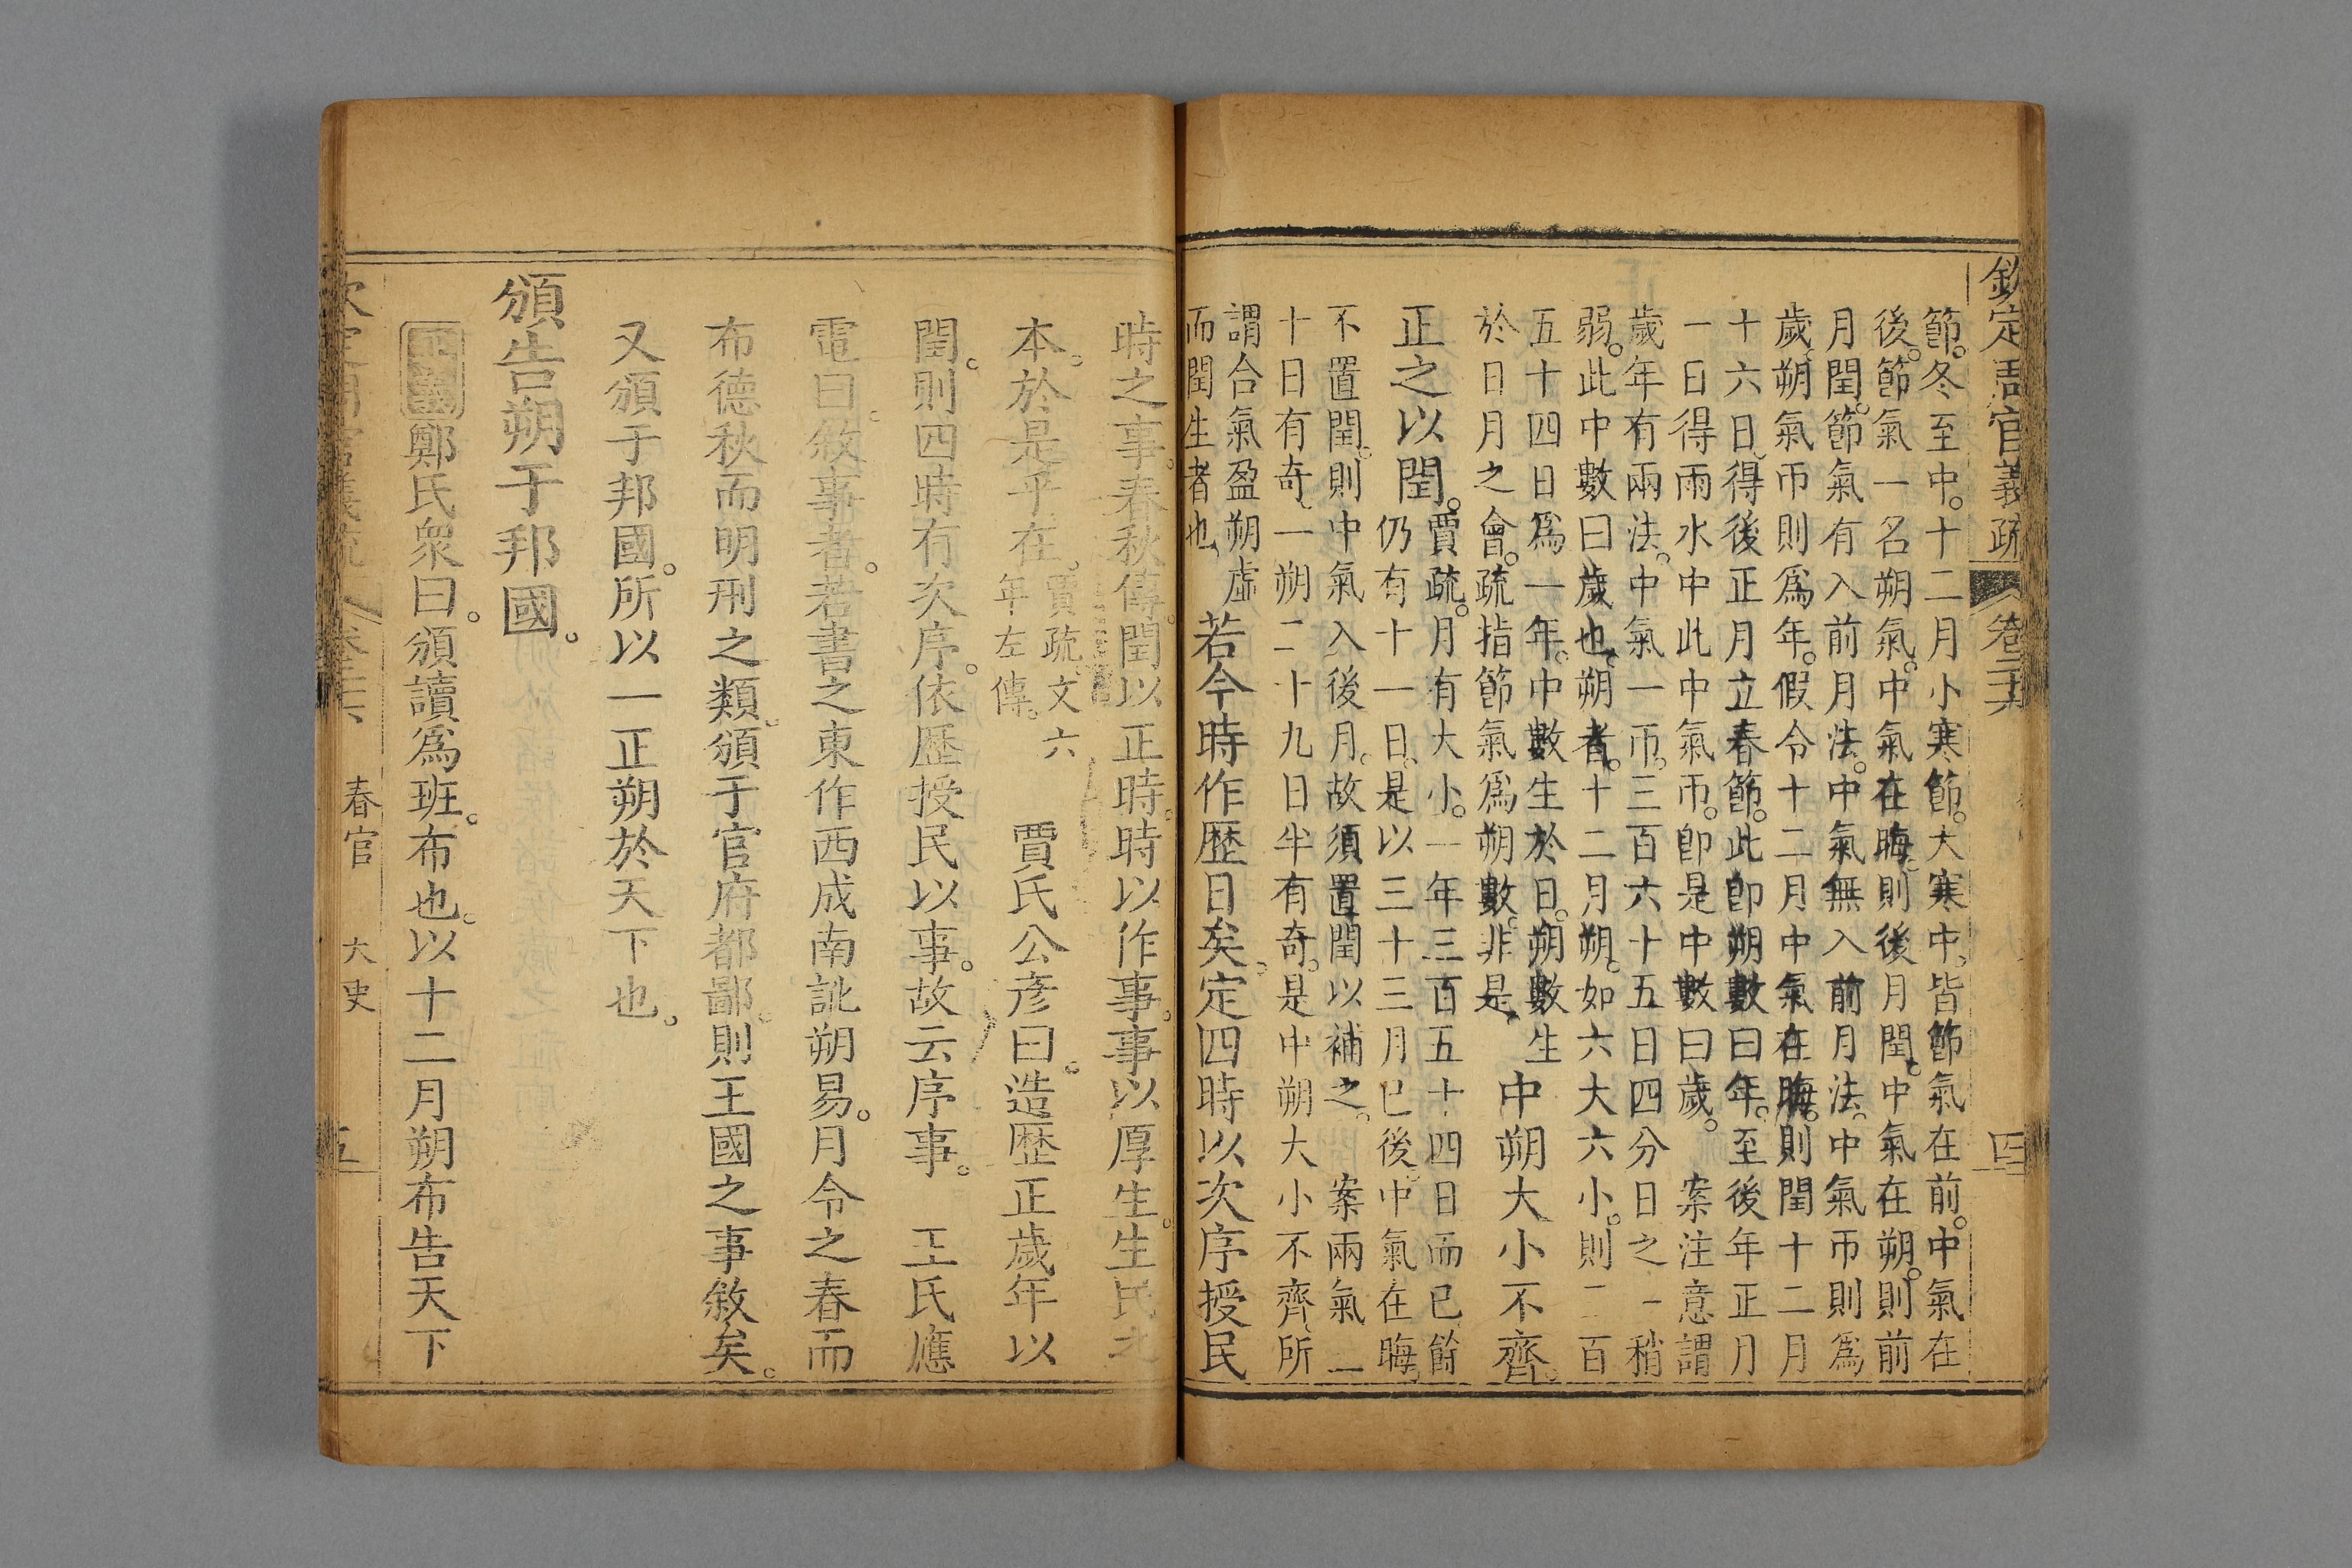 欽定周官義疏 卷二十六 四
節。冬至中。十二月小寒節。大寒中。皆節氣在前。中氣在
後。節氣一名朔氣。中氣在晦。則後月閏。中氣在朔。則前
月閏。節氣有入前月法。中氣無入前月法。中氣帀則爲
歲。朔氣帀則爲年。假令十二月中氣在晦。則閏十二月
十六日。得後正月立春節。此卽朔數曰年。至後年正月
一日得雨水中此中氣帀。卽是中數曰歲。 案注意謂
歲年有兩法。中氣一帀。三百六十五日四分日之一稍
弱。此中數曰歲也。朔者。十二月朔。如六大六小。則二百
五十四日爲一年。中數生於日。朔數生
於日月之會。疏指節氣爲朔數。非是。
中朔大小不齊。
正之以閏。
賈疏。月有大小。一年三百五十四日而已餘
仍有十一日。是以三十三月已後。中氣在晦。
不置閏。則中氣入後月。故須置閏以補之。 案兩氣一
十日有奇。一朔二十九日半有奇。是中朔大小不齊。所
謂合氣盈朔虛
而閏生者也。
若今時作歷日矣。定四時以次序授民
時之事。春秋傳。閏以正時。時以作事。事以厚生。生民之
本。於是乎在。
賈疏。文六
年左傳。
賈氏公彥曰。造歷正歲年以
閏。則四時有次序。依歷授民以事。故云序事。 王氏應
電曰。敘事者。若書之東作西成南訛朔易。月令之春而
布德秋而明刑之類。頒于官府都鄙。則王國之事敘矣。
又頒于邦國。所以一正朔於天下也。
頒告朔于邦國。
正義 鄭氏衆曰。頒讀爲班。布也。以十二月朔布告天下
春官 大史 五